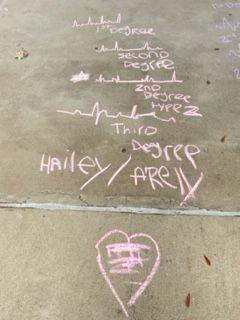 1st Degree
Second
Degree
2nd
Degree
type 2
Third
Degree
HAILEY/ARELY